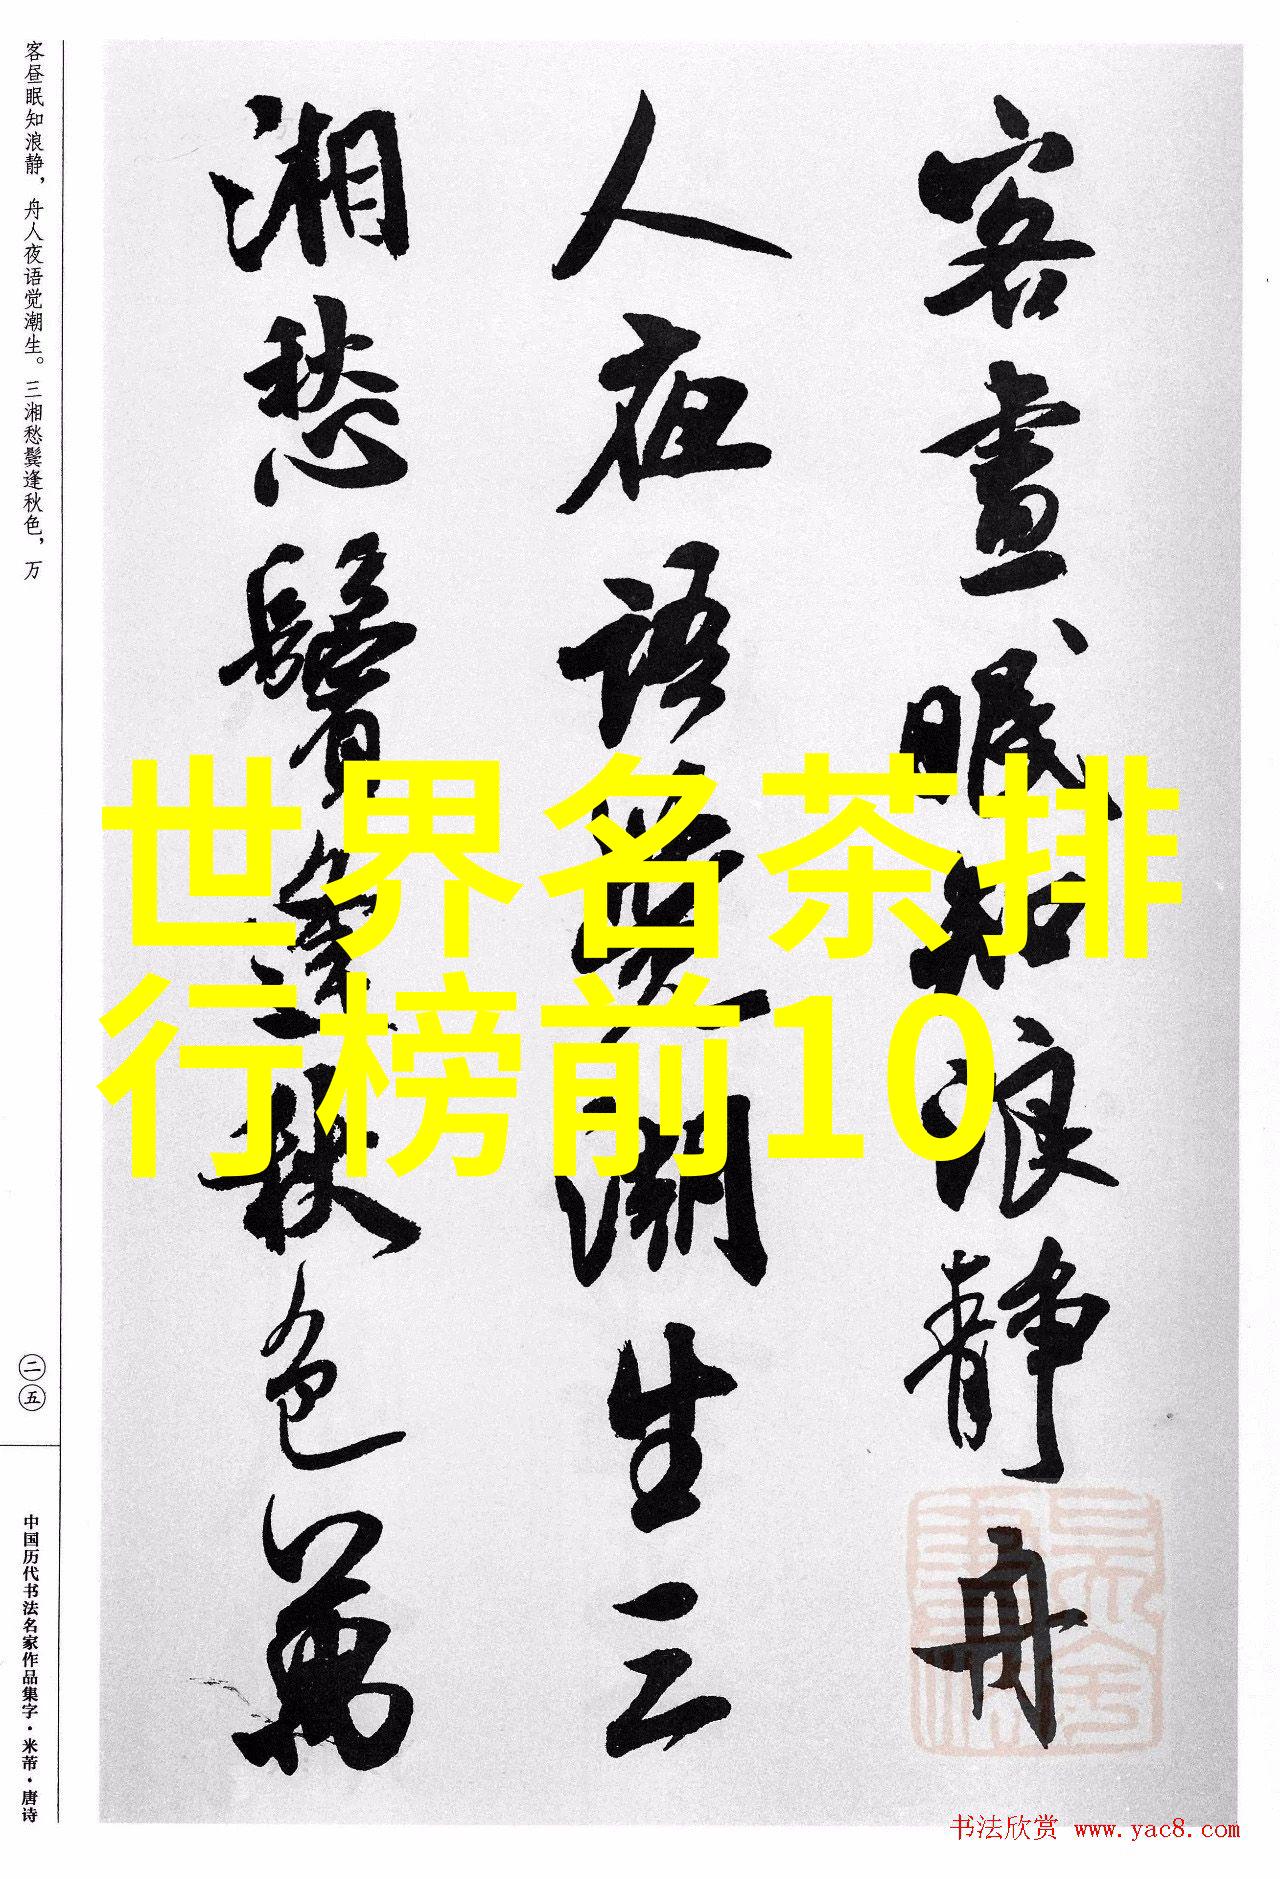 客昼眠知浪静,舟人夜语觉潮生。三湘愁鬓逢秋色,万
二五
中国历代书法名家作品集字·米芾·唐诗
客晝眠知浪静舟
人夜语觉潮生三
湘愁鬓逢秋色萬
世界名茶排
行榜前10
书法欣赏 www.yac8.com